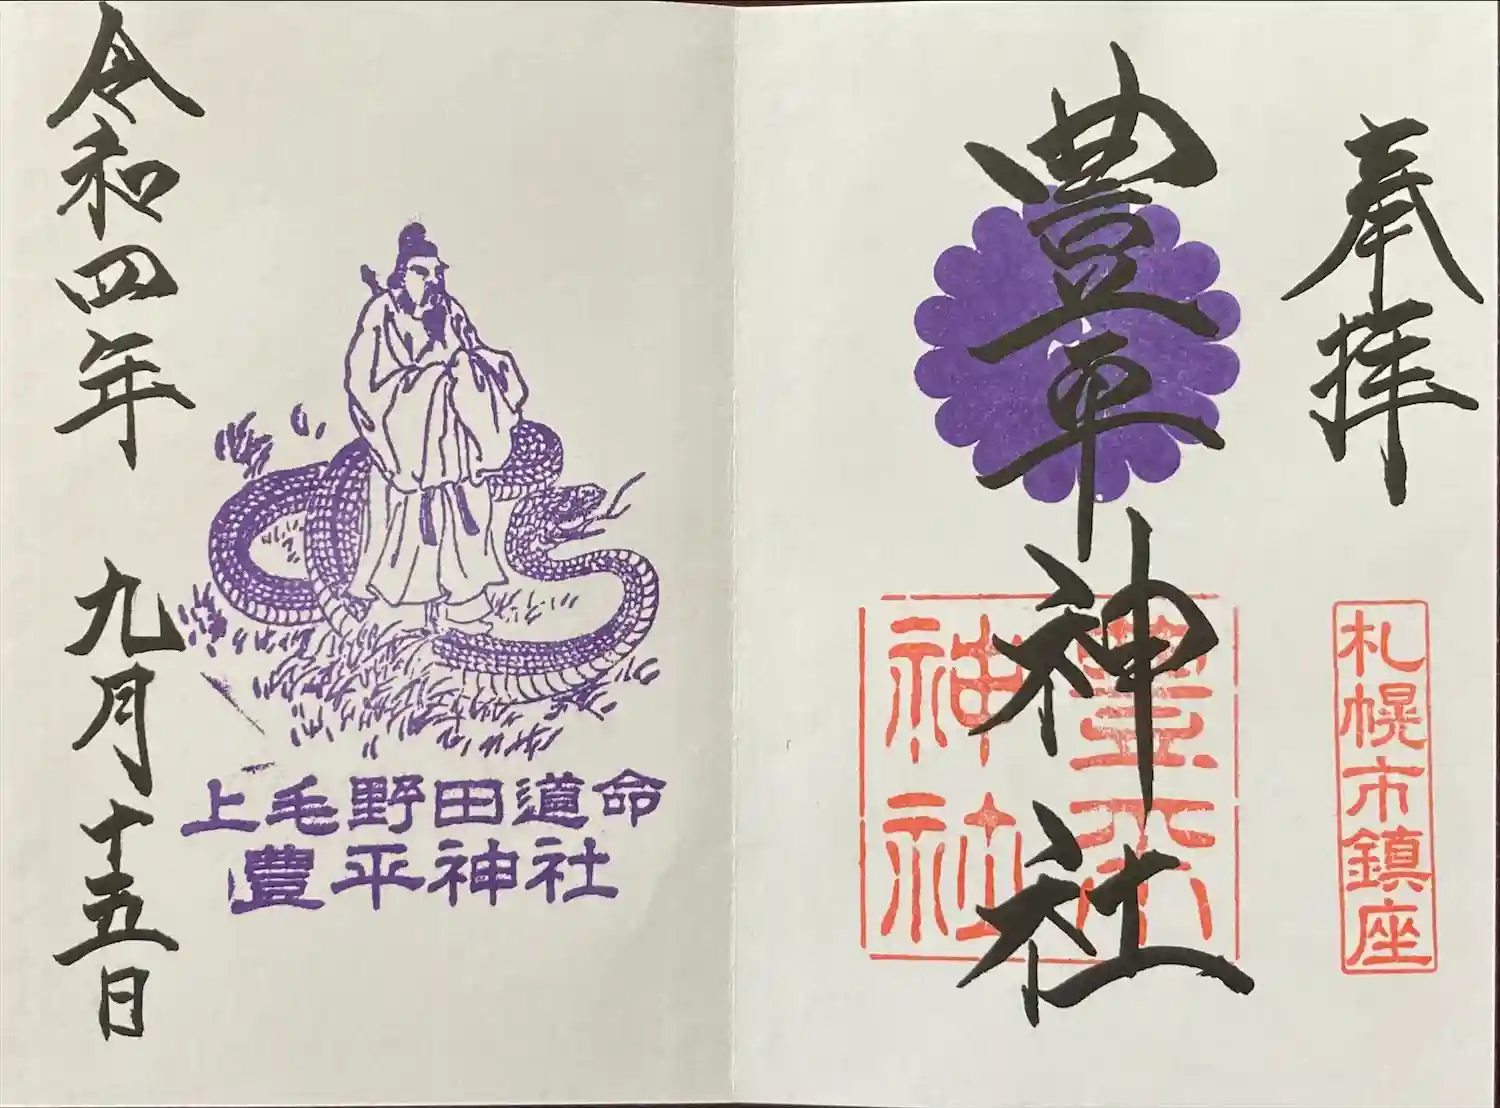 奉拝
札幌市鎮座
豊平神社
豊平
神社
上毛野田道命
豊平神社
令和四年 九月十五日